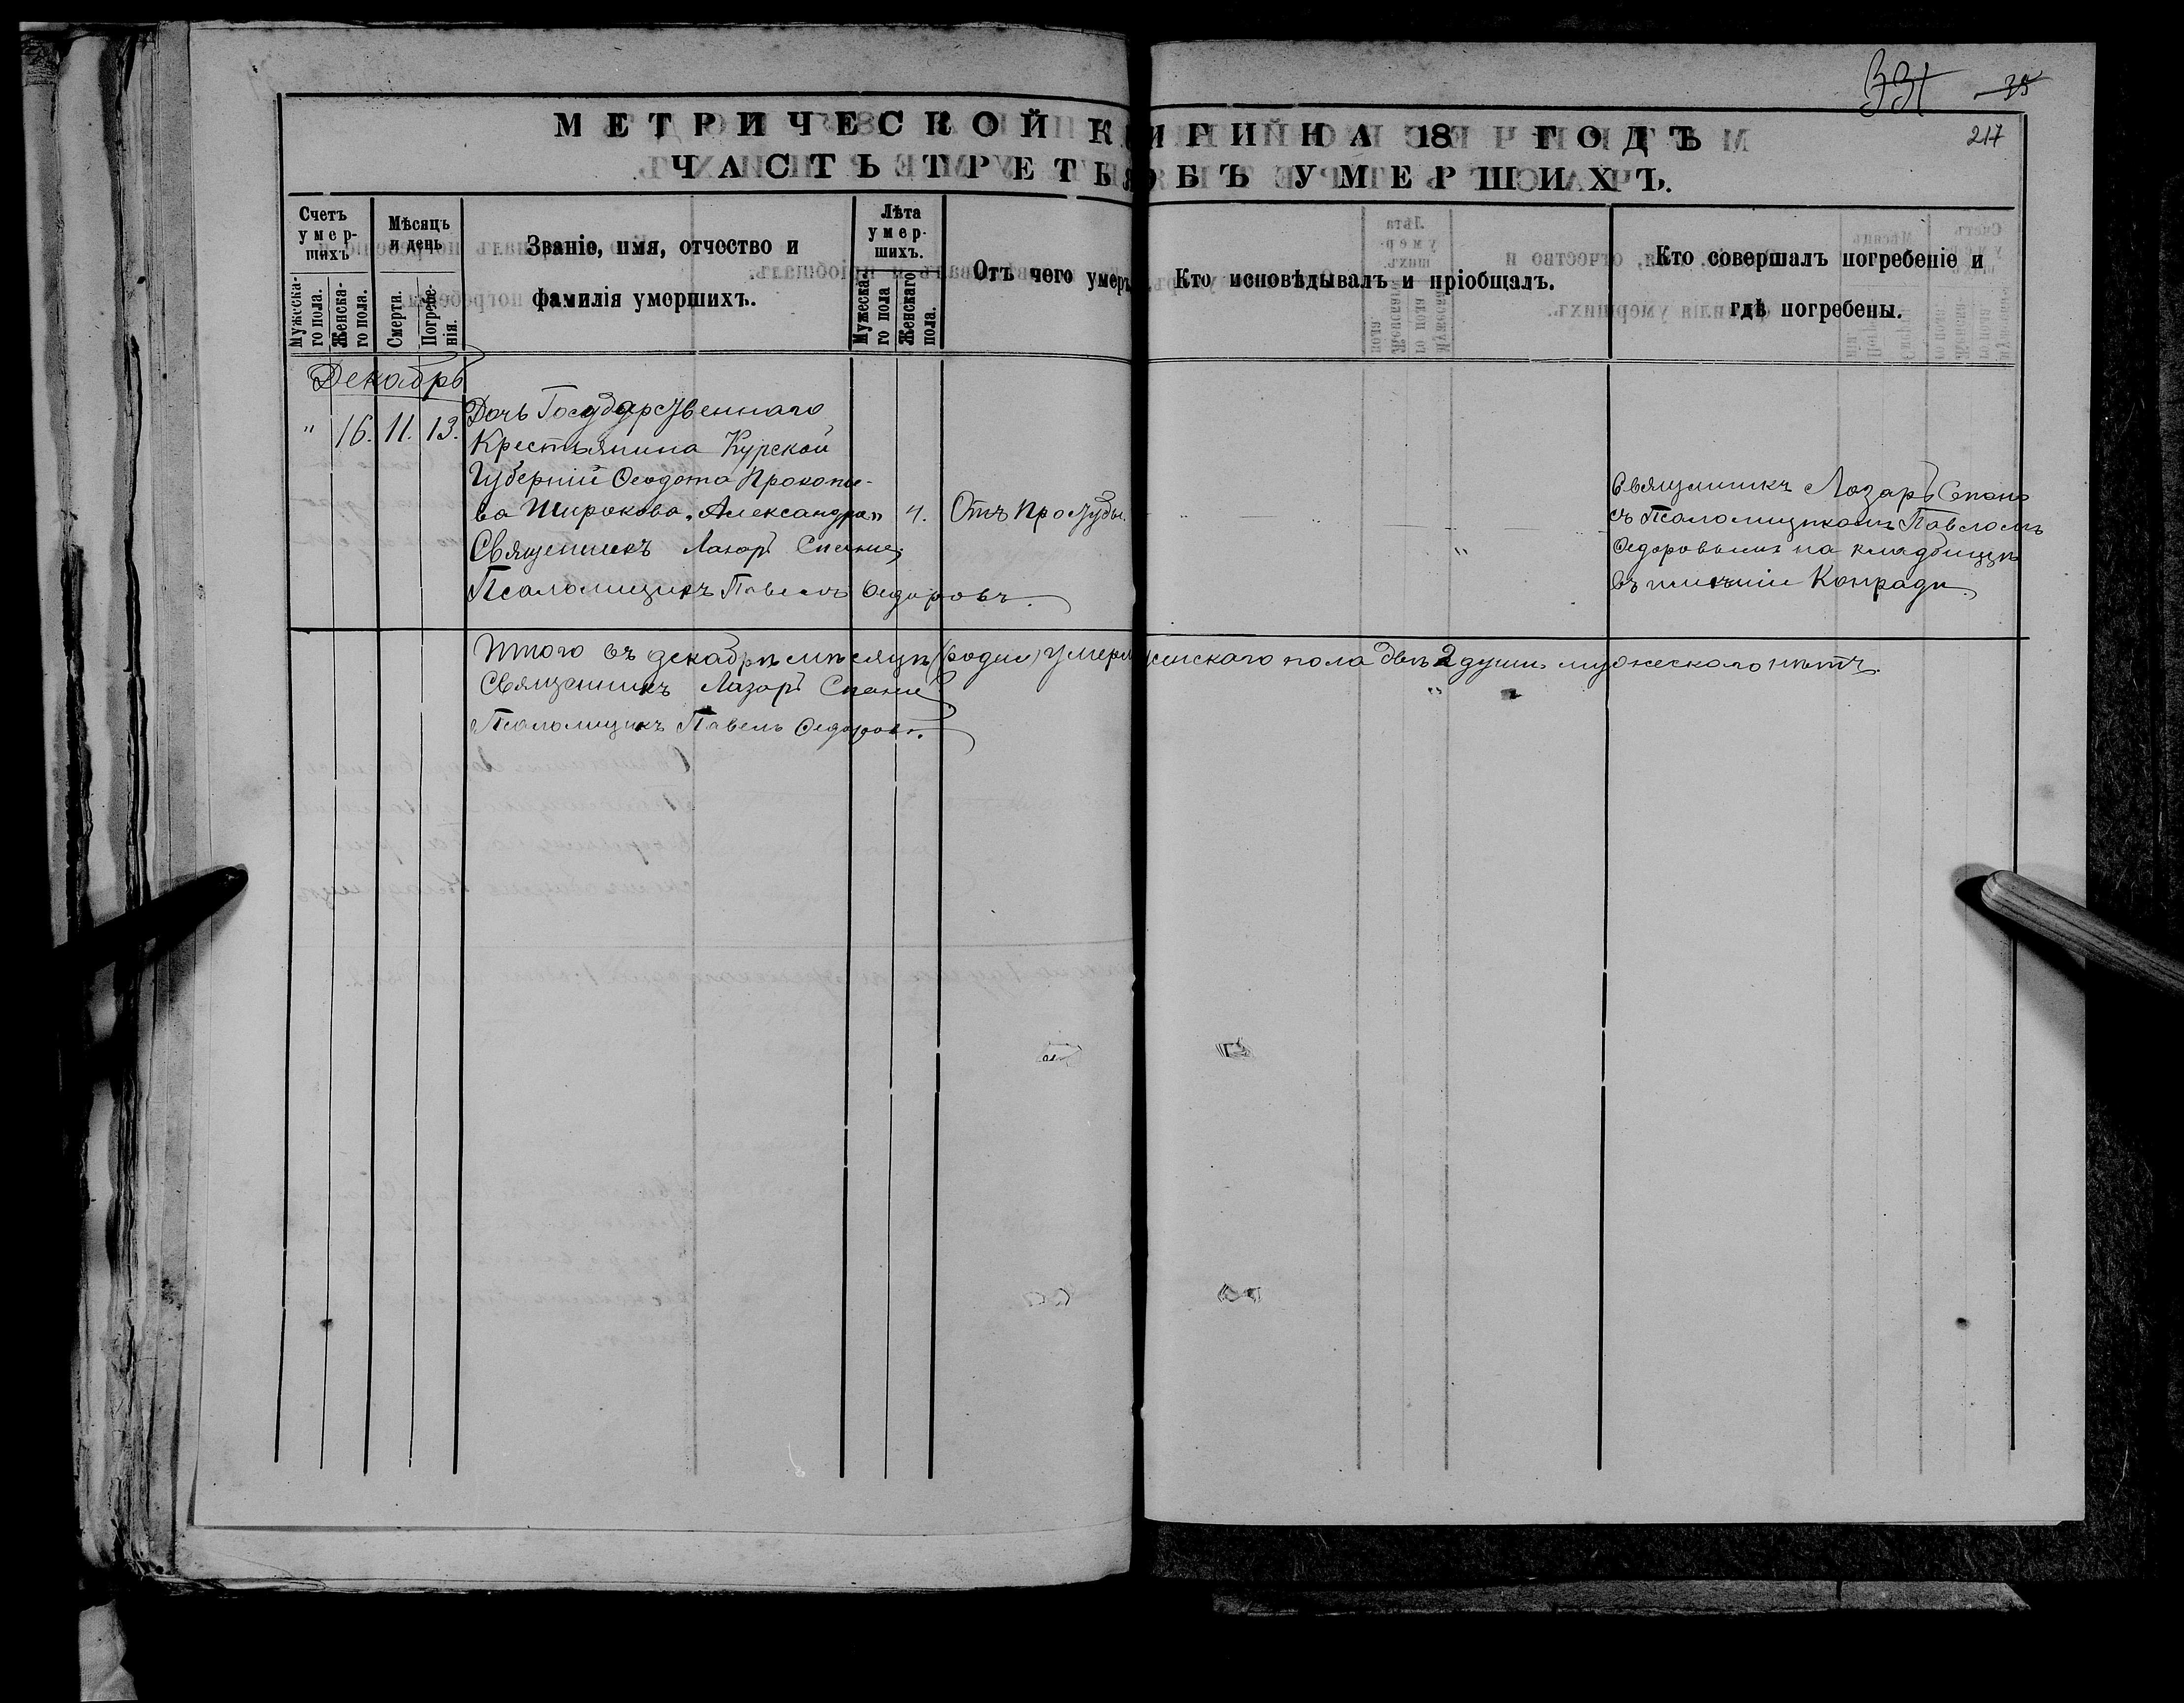 331 35
217
МЕТРИЧЕСКОЙ КНИГИ НА 18 ГОДЪ
ЧАСТЬ ТРЕТЬЯ ОБЪ УМЕРШИХЪ.
Счетъ умер-шихъ
Мужеска-го пола.
Женска-го пола.
Мѣсяцъ и день
Смерти.
Погребе-нія.
Званіе, имя, отчество и
фамилія умершихъ.
Лѣта умер-шихъ.
Мужеска-го пола
Женскаго пола.
Отъ чего умеръ
Кто исповѣдывалъ и пріобщалъ.
Кто совершалъ погребеніе и
гдѣ погребены.
Декабрь
" 16. 11. 13.
Дочь Государственнаго
Крестьянина Курской
Губерніи Ѳеодота Прокопи-
ва Широкова „Александра„ 4. Отъ Простуды.
Священникъ Лазарь
Псаломщикъ Павелъ Ѳедоровъ.
"
Священникъ Лазарь
съ Псаломщикомъ Павломъ
Ѳедоровымъ на кладбищѣ
въ имѣніи Конради.
Итого въ декабрѣ мѣсяцѣ умерло женскаго пола двѣ 2 души мужескаго нѣтъ.
Священникъ Лазарь
Псаломщикъ Павелъ Ѳедоровъ.